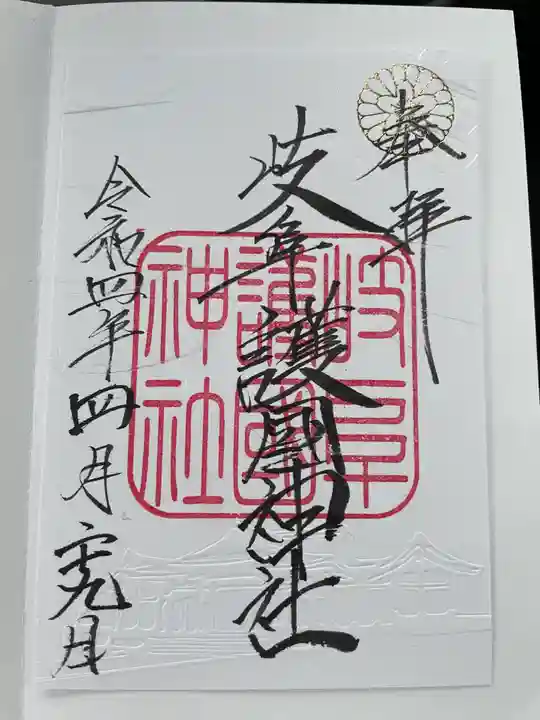 奉拝
岐阜護國神社
岐阜
護國
神社
令和四年四月二十九日